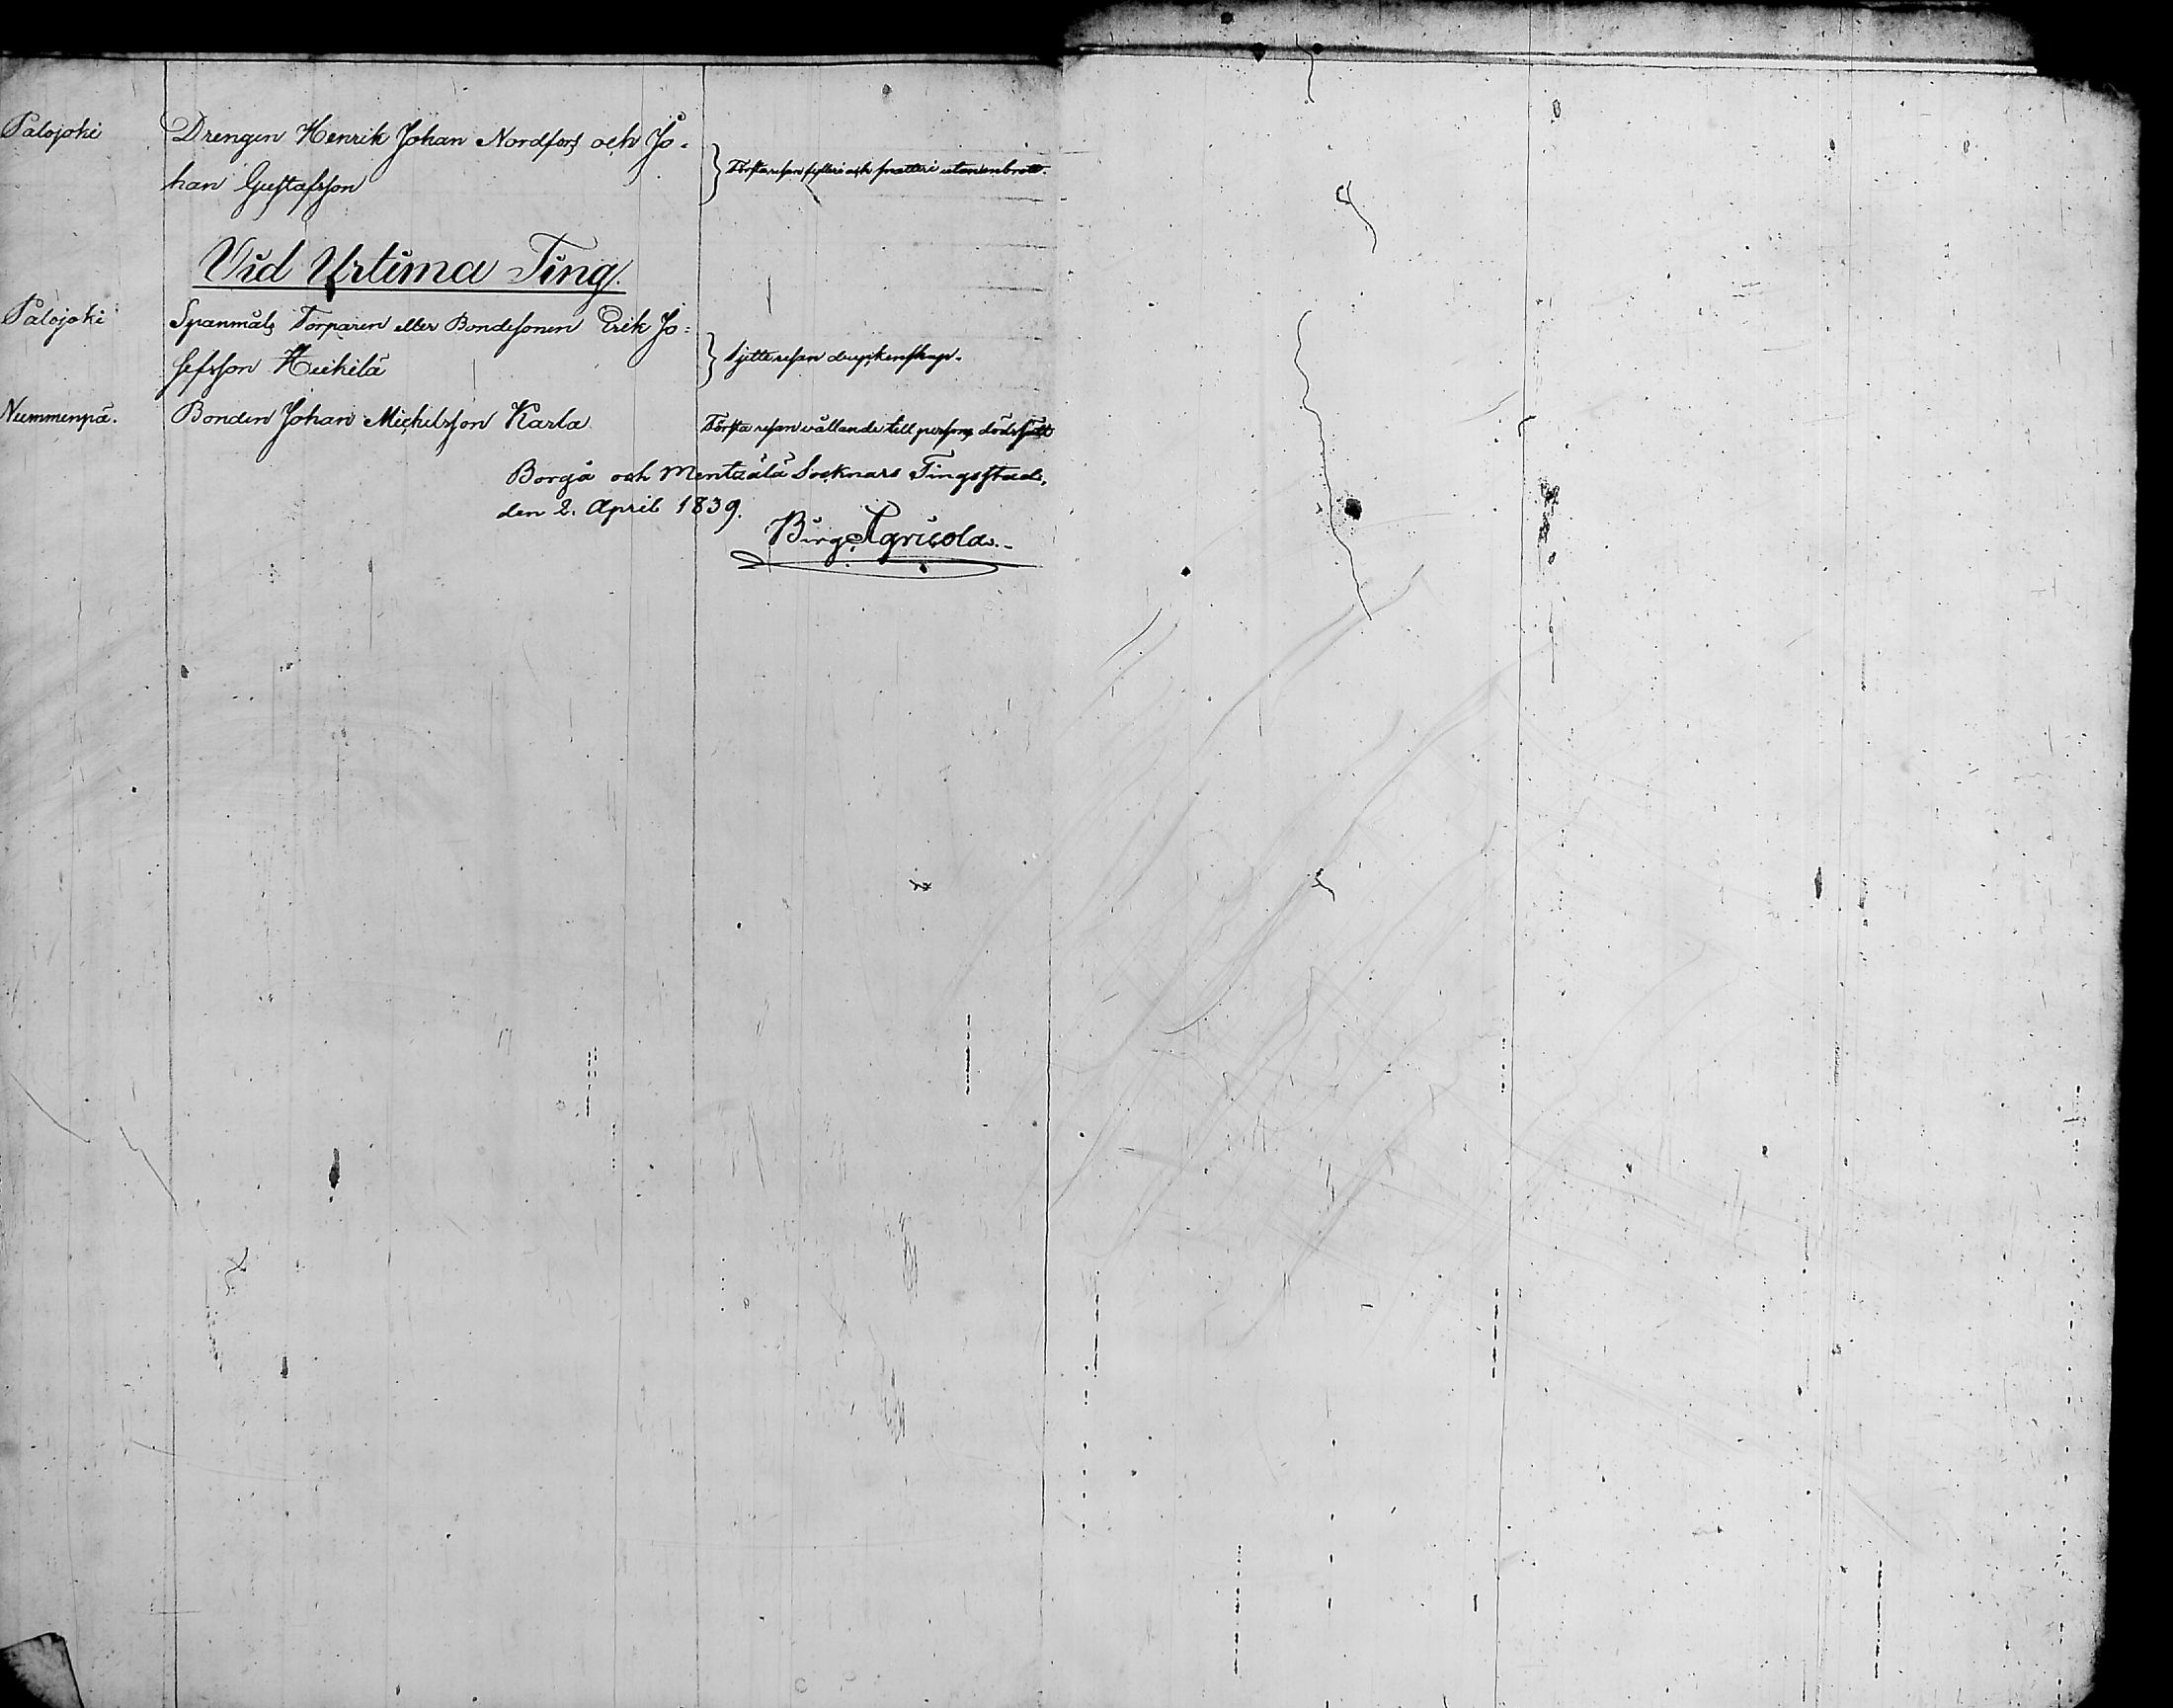 Palojoki
Drengen Henrik Johan Nordfors och Jo-
han Gustafsson
Första resan fylleri och snatteri utan inbrott.
Vid Urtima Ting.
Palojoki
Spanmåls Torparen eller Bondesonen Erik Jo-
sefsson Heikilä
Sjette resan dryckenskap.
Nummenpä.
Bonden Johan Michelsson Karla
Första resan vållande till persons död
Borgå och Mentsälä Socknars Tingsstad,
den 2. April 1839.
Birg. Agricola.